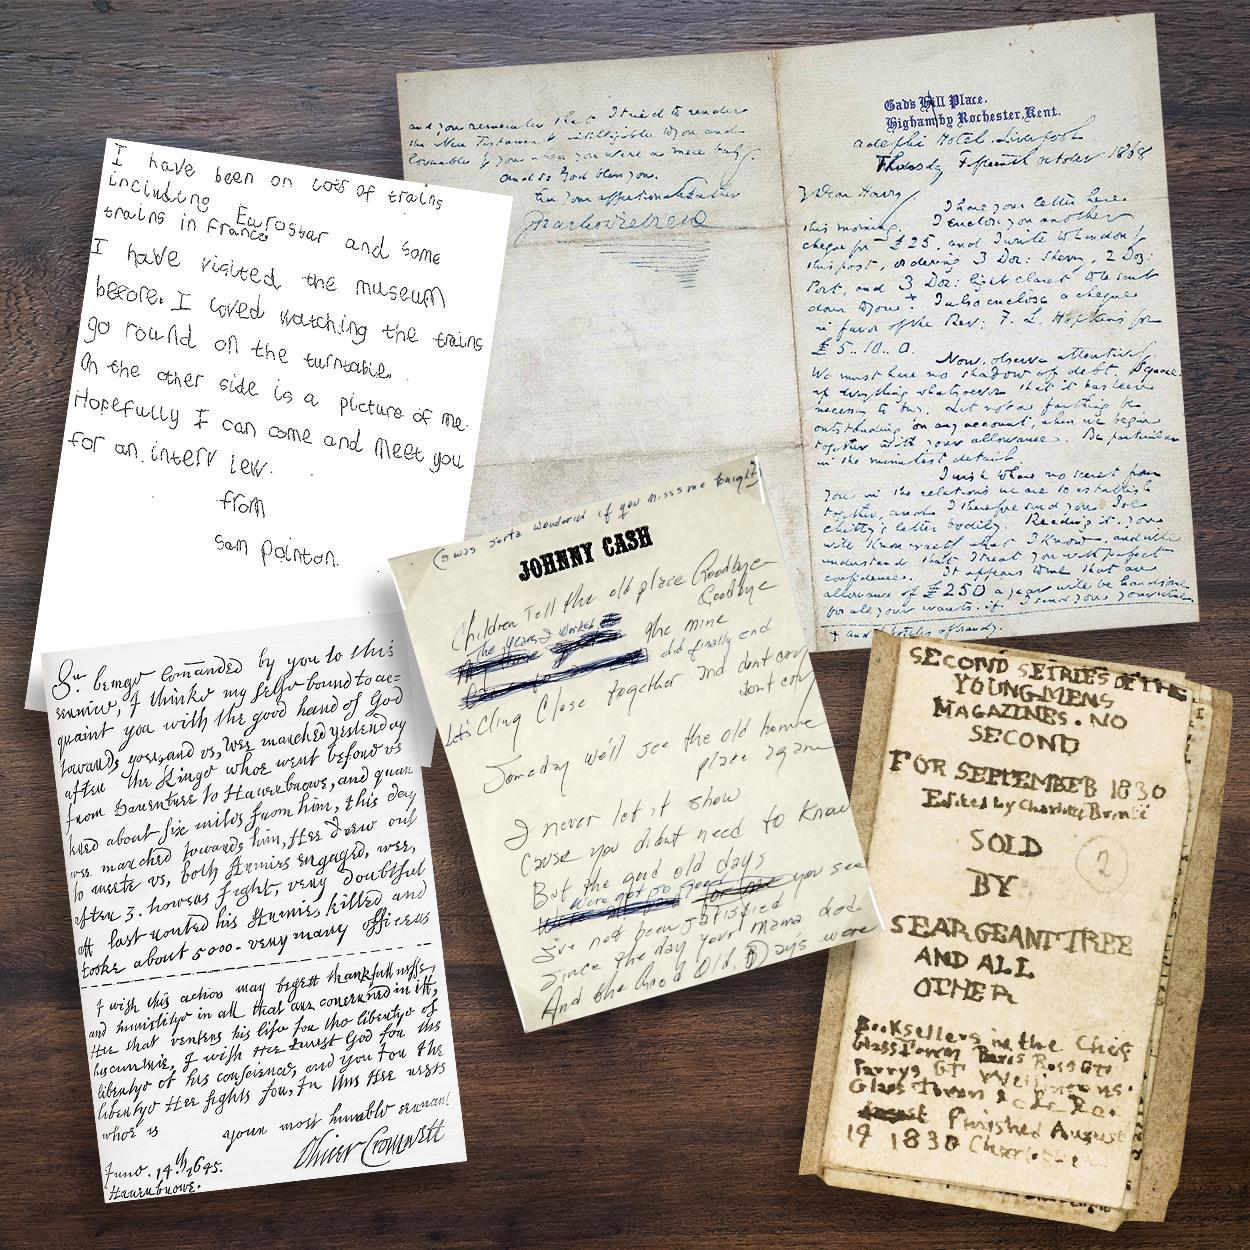 I have been on lots of trains
including Eurostar and some
trains in France
I have visited the museum
before. I loved watching the trains
go round on the turntable.
On the other side is a picture of me.
Hopefully I can come and meet you
for an interview.
from
Sam Pointon.
and you remember that I tried to render
the New Testament intelligible to you and
lovable by you when you were a mere baby.
and so God bless you.
Ever your affectionate Father
Gads Hill Place,
Higham by Rochester, Kent.
Adelphi Hotel, Liverpool
Thursday Fifteenth October 1868
My Dear Harry
I have your letter here
this morning. I enclose you another
cheque for £25, and I write to London by
this post, ordering 3 Doz: sherry, 2 Doz:
Port, and 3 Doz: light claret to be sent
down to you + I also enclose a cheque
in favor of the Rev: F. L. Hopkins for
£5..10..0.
Now, observe attentively.
We must have no shadow of debt. Square
up everything whatsoever that it has been
necessary to buy. Let not a farthing be
outstanding on any account, when we begin
together with your allowance. Be particular
in the minutest detail.
I wish to have no secret from
you in the relations we are to establish
together, and I therefore send you Joe
Chitty's letter bodily. Reading it, you
will know exactly what I know, and will
understand that I treat you with perfect
confidence. It appears to me that an
allowance of £250 a year will be handsome
for all your wants, if I send you your wines
+ and bottles of brandy
(I was sorta wonderin if you miss me tonight)
JOHNNY CASH
Children Tell the old place Goodbye
Goodbye
The years I worked
the mine
did finally end
Let's Cling Close together and dont cry
dont cry
Someday we'll see the old home
place again
I never let it show
Cause you didnt need to know
But the good old days
were not so good
for me you see
I've not been satisfied
Since the day your mama died
And the Good Old Days were
Sr. beinge Comanded by you to this
service, I thinke my selfe bound to ac=
quaint you with the good hand of God
towards you, and vs, wee marched yesterday
after the Kinge whoe went before vs
from Dauentree to Hauerbrowe, and quar
tered about six miles from him, this day
wee marched towards him, Hee drew out
to meete vs, both Armies engaged, wee,
after 3. howers fight, very doubtful
att last routed his Armie, killed and
tooke about 5000. very many officers
I wish this action may begett thankfullnesse,
and humilitye in all that are concerned in itt,
Hee that venters his life for the libertye of
his cuntrie, I wish Hee trust God for the
libertye of his conscience, and you for the
libertye Hee fights for, In this Hee rests
whoe is your most humble servant
Oliver Cromwell
June. 14th. 1645.
Hauerbrowe.
SECOND SEIRIES OF THE
YOUNG MENS
MAGAZINES. NO
SECOND
FOR SEPTEMBER 1830
Edited by Charlotte Brontë
SOLD
BY
SEARGEANT TREE
AND ALL
OTHER
2
Booksellers in the Chief
Glass Town Paris Ross Gt
Parrys Gt Wellingtons
Glass Town &c &c &c.
August Finished August
19 1830 Charlotte